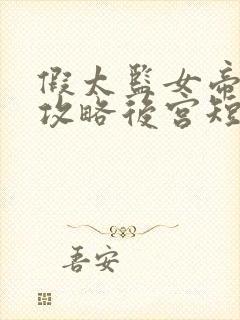 假太监女帝
攻略後宫短
吾安